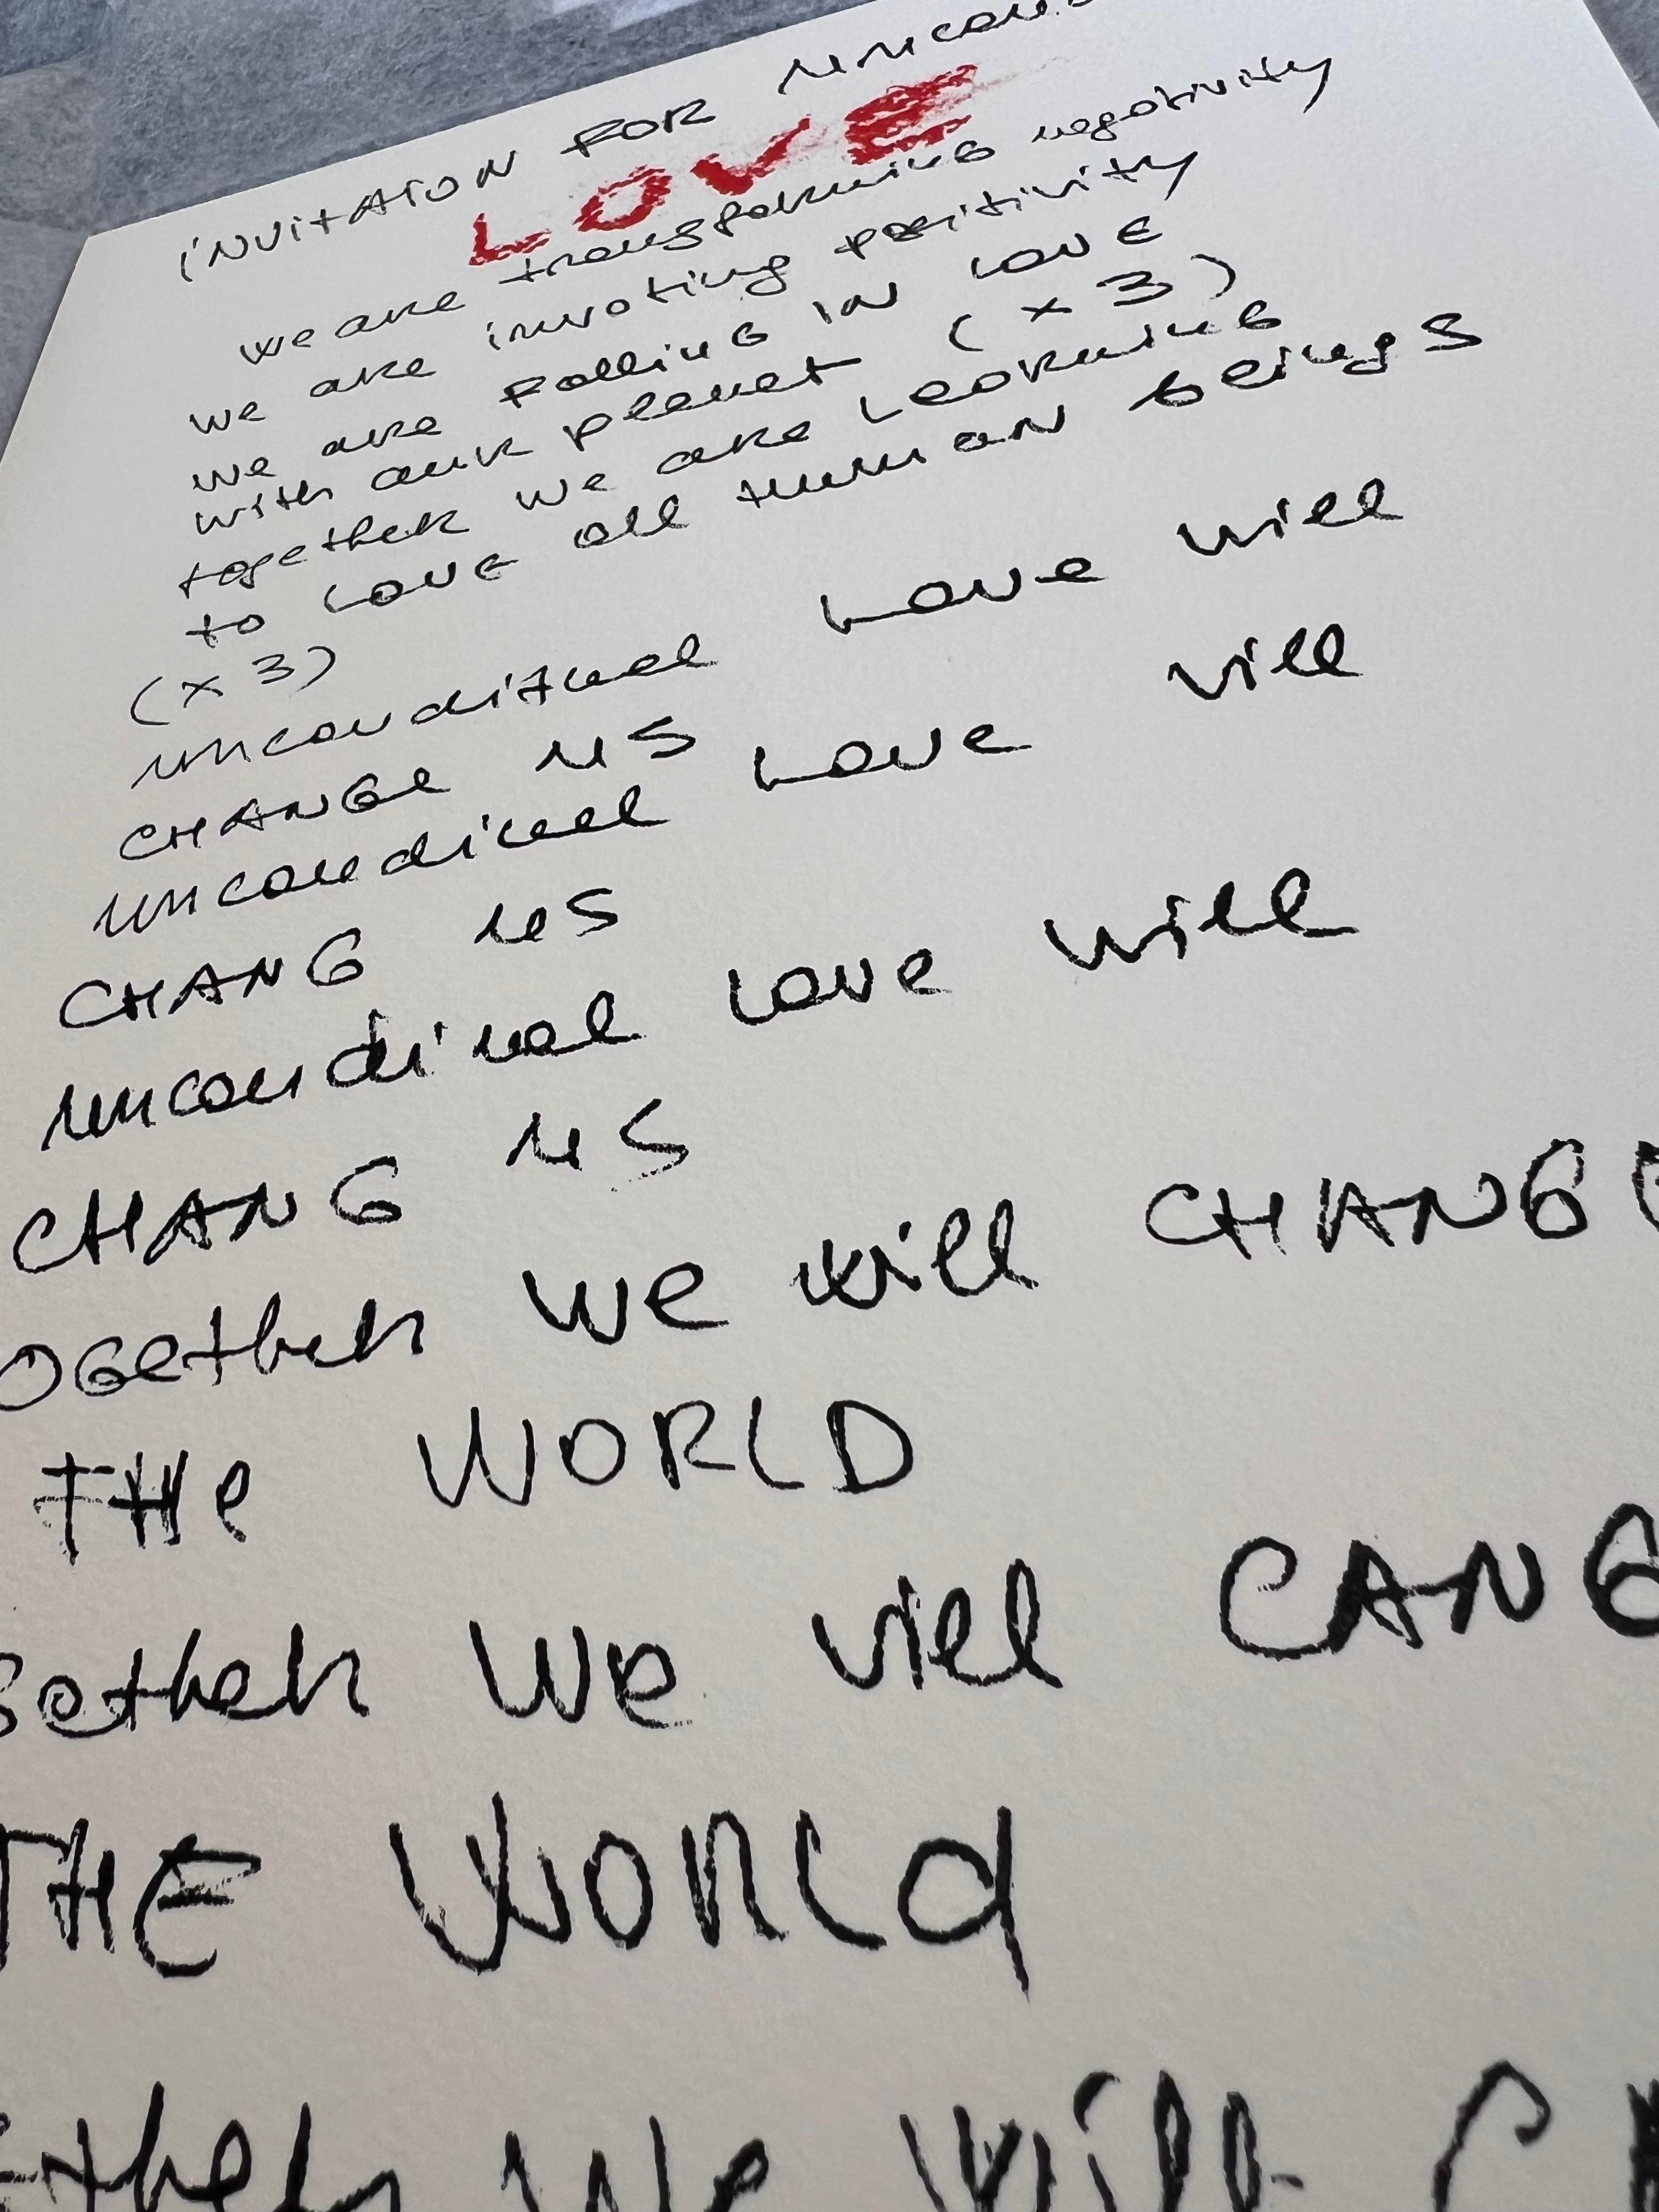 iNVitAtiON FOR UNCON
LOVE
we are transforming negativity
we are invoting positivity
we are falling in LOVE
with our planet (x3)
together we are learning
to LOVE all human beings
(x3)
uncondituel Love will
CHANGe US
uncondinel Love vill
CHANG US
uncondinal Love will
CHANG US
OGether we will CHANGE
THe WORLD
Gether We vill CANG
THE WORLd
ether We will C